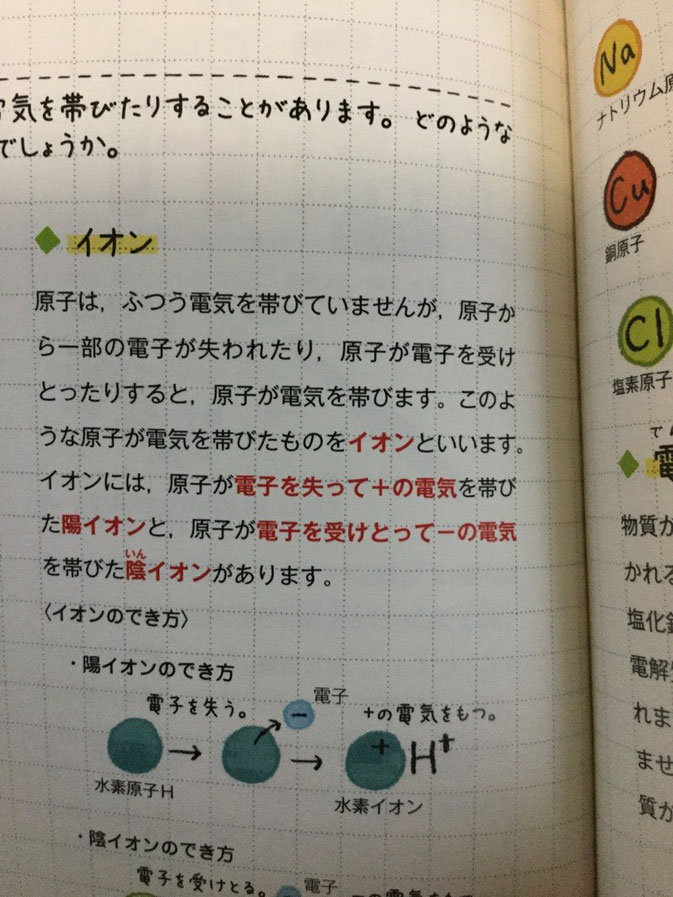 気を帯びたりすることがあります。どのような
でしょうか。
イオン
原子は，ふつう電気を帯びていませんが，原子か
ら一部の電子が失われたり，原子が電子を受け
とったりすると，原子が電気を帯びます。このよ
うな原子が電気を帯びたものをイオンといいます。
イオンには，原子が電子を失って＋の電気を帯び
た陽イオンと，原子が電子を受けとって－の電気
いん
を帯びた陰イオンがあります。
〈イオンのでき方〉
・陽イオンのでき方
電子を失う。
電子
－
＋の電気をもつ。
＋
H⁺
水素原子H
水素イオン
・陰イオンのでき方
電子を受けとる。
電子
Na
ナトリウム原
Cu
銅原子
Cl
塩素原子
で
電
物質が
かれる
塩化銅
電解質
れま
ませ
質が